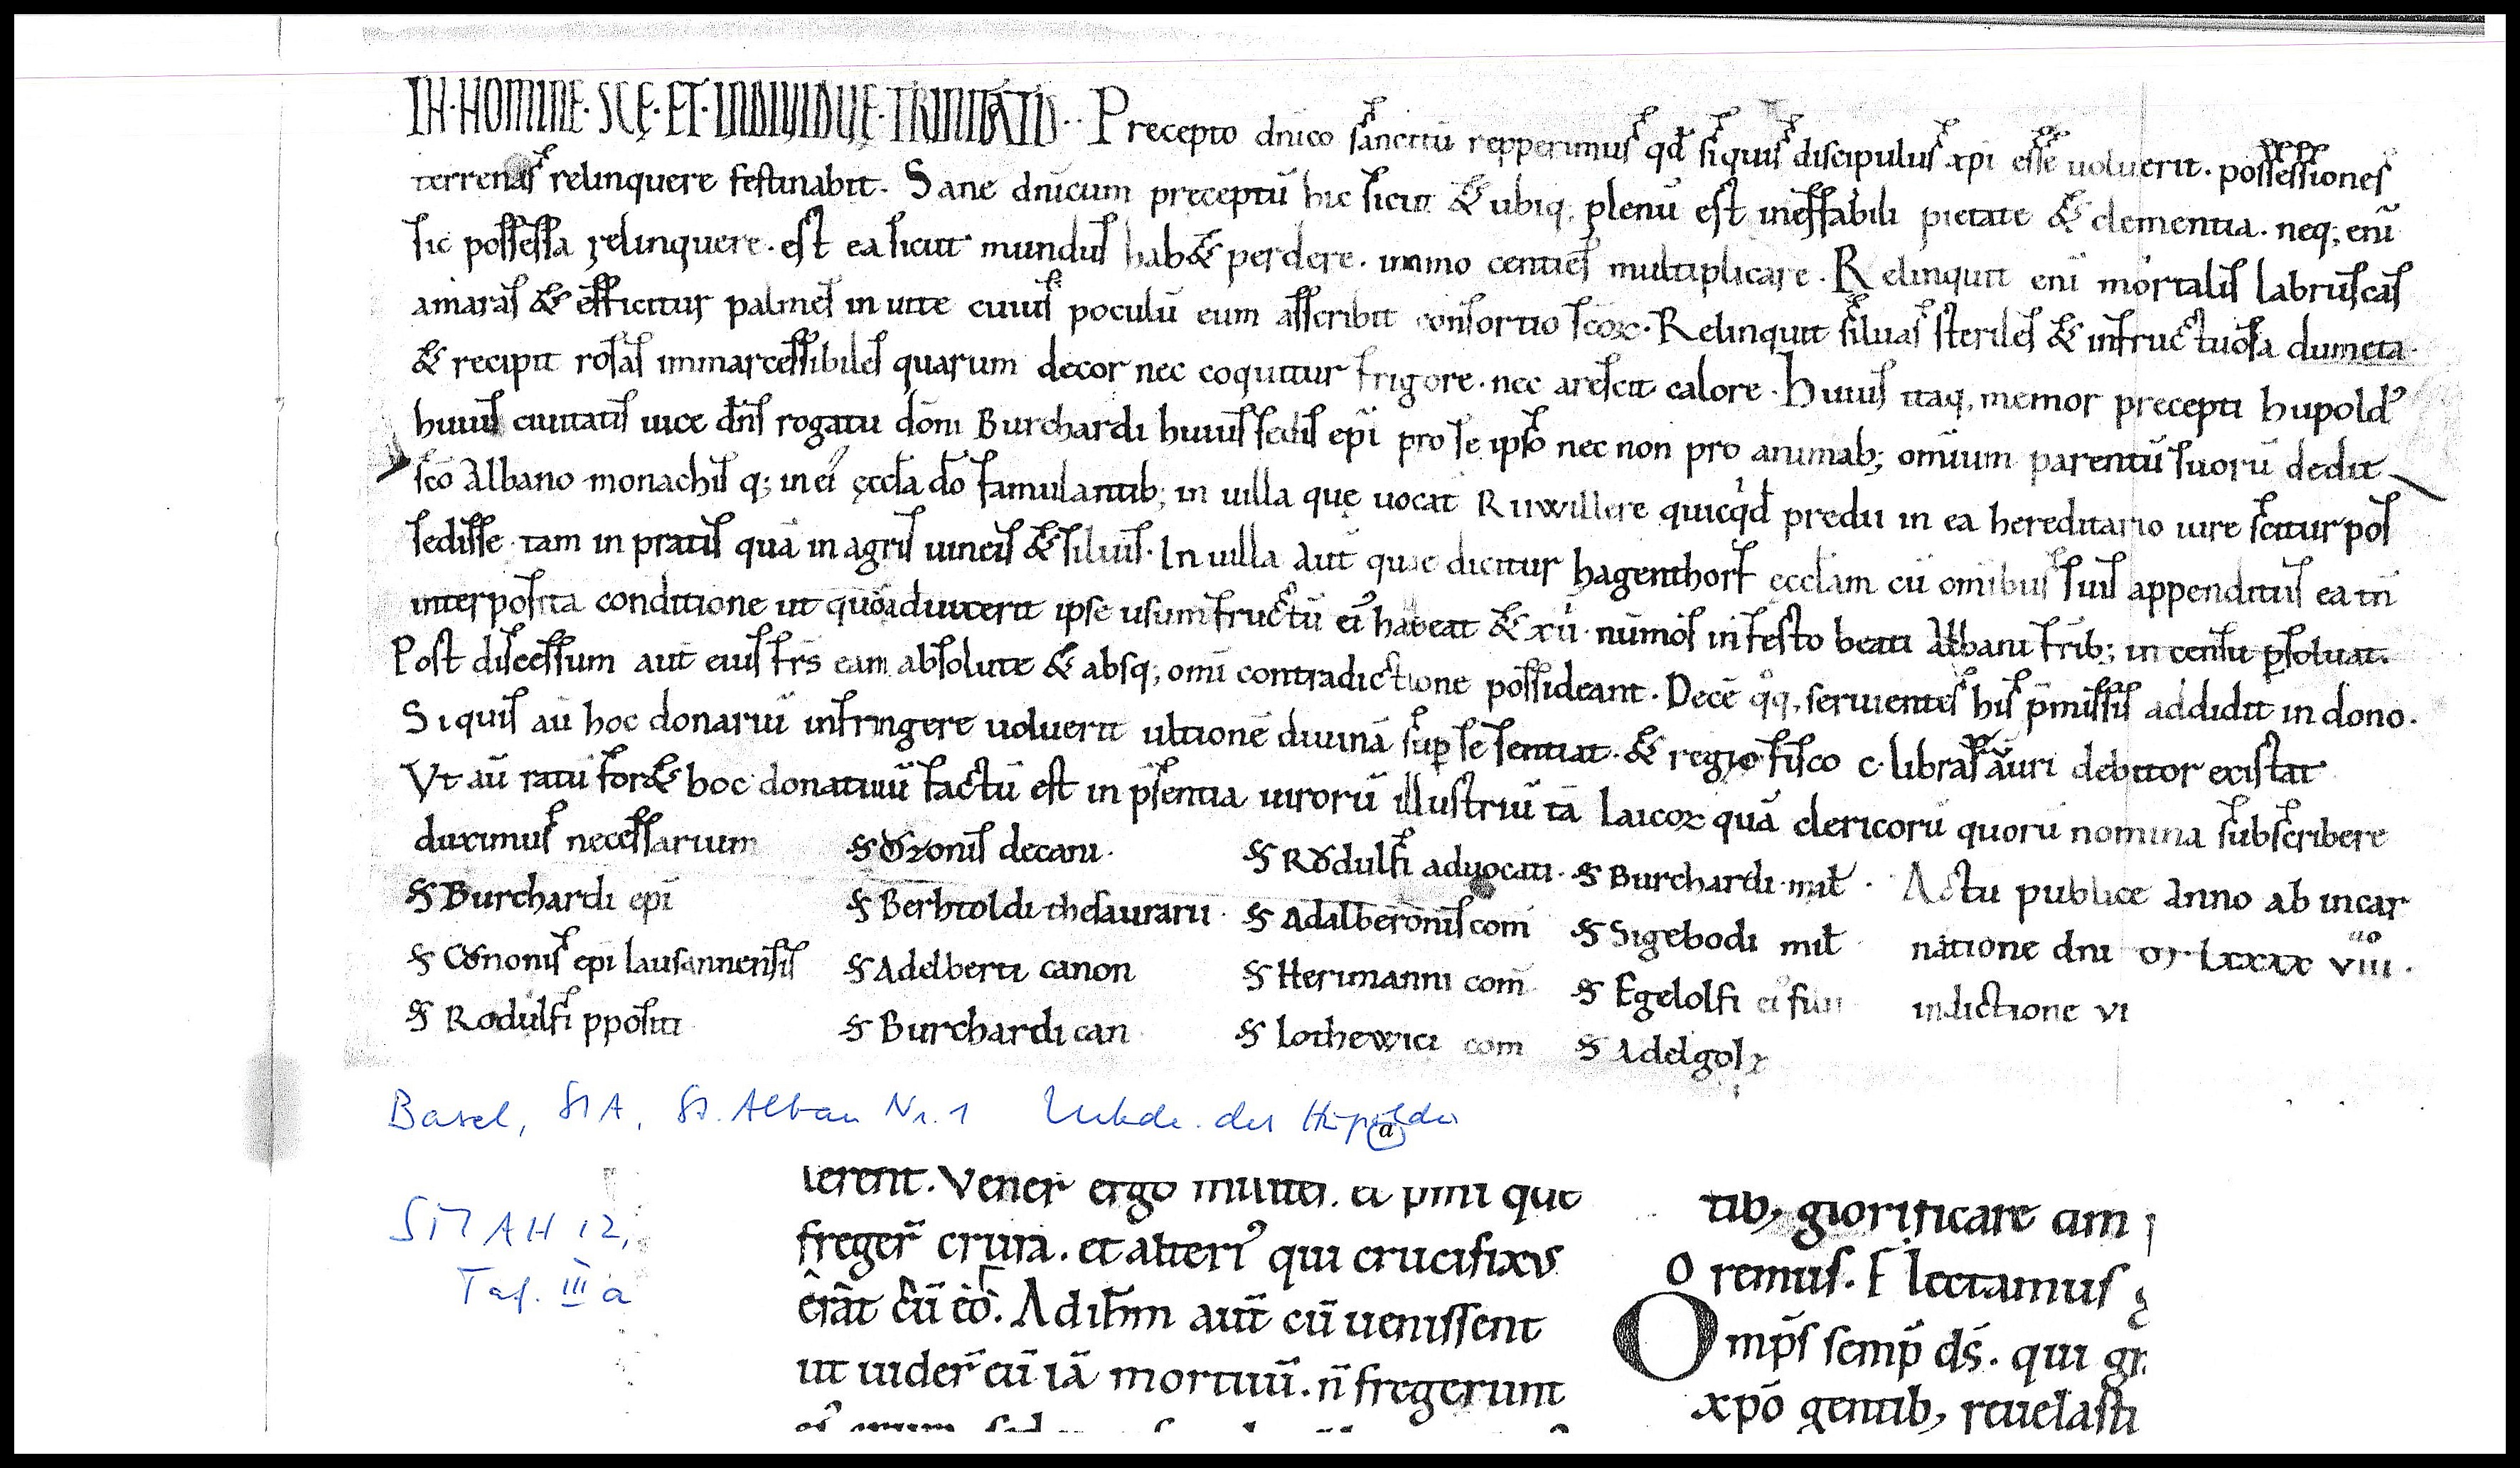 IN · NOMINE · SCĘ · ET · INDIVIDUĘ · TRINITATIS ·· Precepto dn̄ico sanctitū repperimus qd̄ siquis discipulus xpi esse uoluerit. possessiones
terrenas relinquere festinabit. Sane dn̄icum preceptū hic sicut & ubiq; plenū est ineffabili pietate & clementia. neq; enī
sic possessa relinquere. est ea sicut mundus hab& perdere. immo centies multiplicare. Relinquit enī mortalis labruscas
amaras & efficitur palmes in uite cuius poculū eum asscribit consortio scoꝝ. Relinquit siluas steriles & infructuosa dumeta
& recipit rosas immarcessibiles quarum decor nec coquitur frigore. nec arescit calore. Huius itaq; memor precepti hupold᾽
huius ciuitatis uice dn̄s rogatu dōni Burchardi huius sedis epī pro se ipso nec non pro animab; omīum parentū suorū dedit
sc̄o Albano monachis q; in eī ęccła dō famulantib; in uilla quę uocat Ruwillere quicqd̄ predii in ea hereditario iure scitur pos
sedisse. tam in pratis quā in agris uineis & siluis. In uilla aut̄ quae dicitur hagenthorf ecclam cū omībus suis appenditiis ea tn̄
interposita conditione ut quoad uixerit ipse usum fructū eī habeat & xii nūmos in festo beati Albani frīb; in censu ꝑsoluat.
Post discessum aut̄ eius frs̄ eam absolute & absq; omī contradictione possideant. Decē qͦq; seruientes his p̄missis addidit in dono.
Si quis aū hoc donatiuū infringere uoluerit ultionē diuinā sup̱ se sentiat. & regio fisco c. libras auri debitor existat
Vt aū ratū for& hoc donatiuū factū est in p̄sentia uirorū illustriū tā laicoꝝ quā clericorū quorū nomina subscribere
duximus necessarium
S Burchardi epī
S Cͦononis epi lausannensis
S Rodulfi ppositi
S Oͮzonis decani.
S Berhtoldi thesaurarii
S Adelberti canon
S Burchardi can
S Rͮodulfi aduocati.
S Adalberonis com
S Herimanni com̄
S Lothewici com
S Burchardi mił.
S Sigebodi mił
S Egelolfi eī filii
S Adelgoz
Actū publice anno ab incar
natione dni M LXXXX VIIIuo.
indictione VI
Basel, StA, St. Alban Nr. 1 Urkde. des Hupoldus
a
StT AH 12,
Taf. III a
ierent. Vener̄ ergo milites. et pmi que
freger̄ crura. et alteri᾽ qui crucifixus
erāt cū eo. Ad ihm autē cū uenissent
ut uider̄ eū iā mortuū. n̄ fregerunt
tib; glorificare am
Oremus. Flectamus g
Omps semp ds. qui gr
xpō gentib; reuelasti